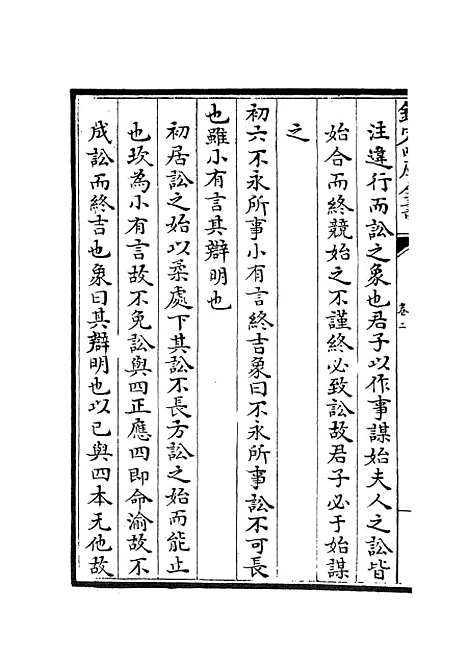 欽定四庫全書
卷二
注違行而訟之象也君子以作事謀始夫人之訟皆
始合而終競始之不謹終必致訟故君子必于始謀
之
初六不永所事小有言終吉象曰不永所事訟不可長
也雖小有言其辯明也
初居訟之始以柔處下其訟不長方訟之始而能止
也坎為小有言故不免訟與四正應四即命渝故不
成訟而終吉也象曰其辯明也以已與四本无他故